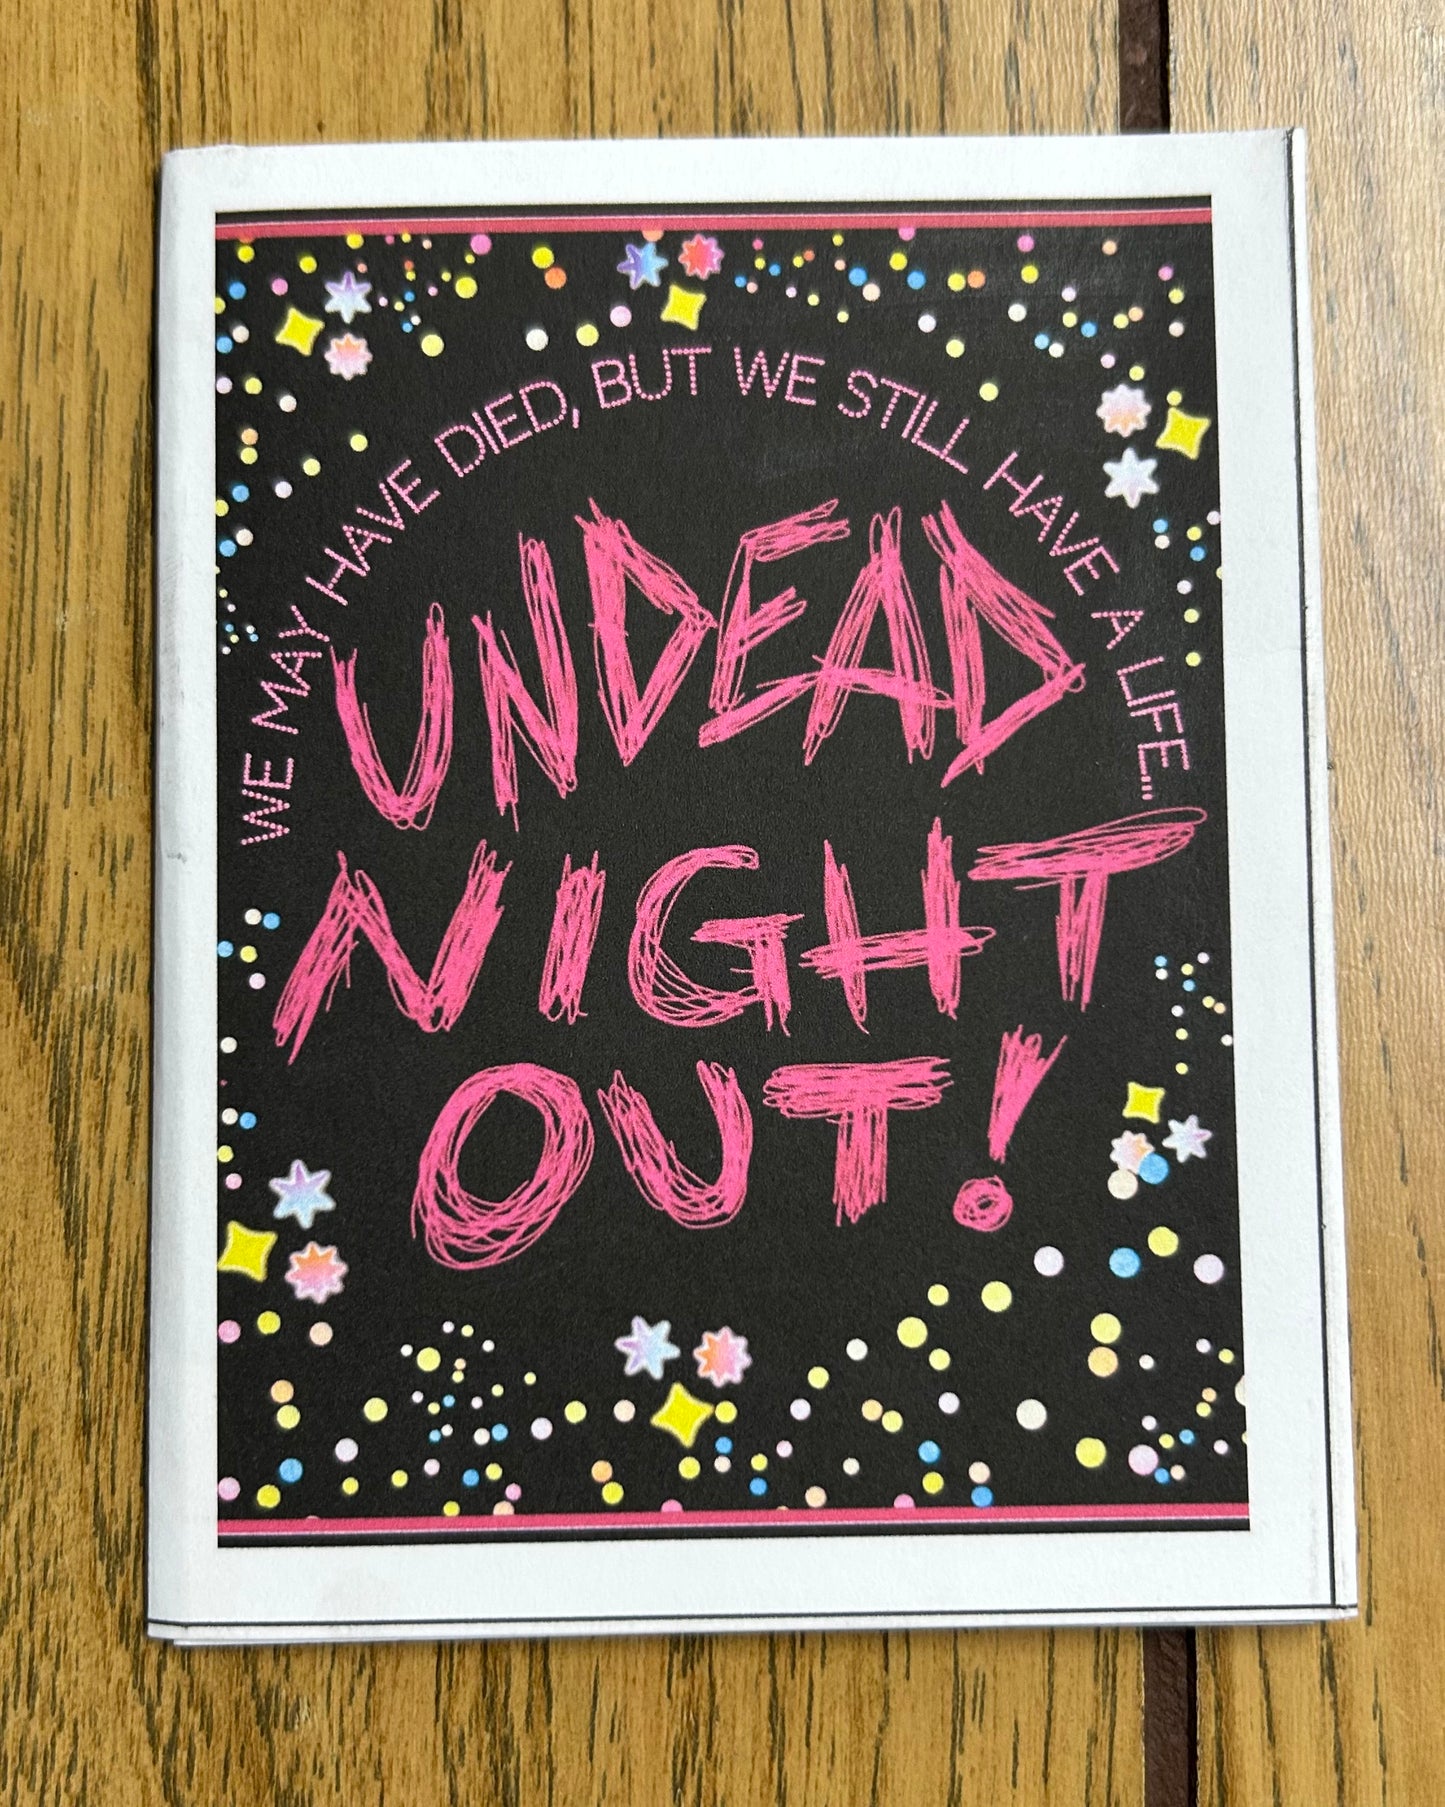 WE MAY HAVE DIED, BUT WE STILL HAVE A LIFE...
UNDEAD
NIGHT
OUT!